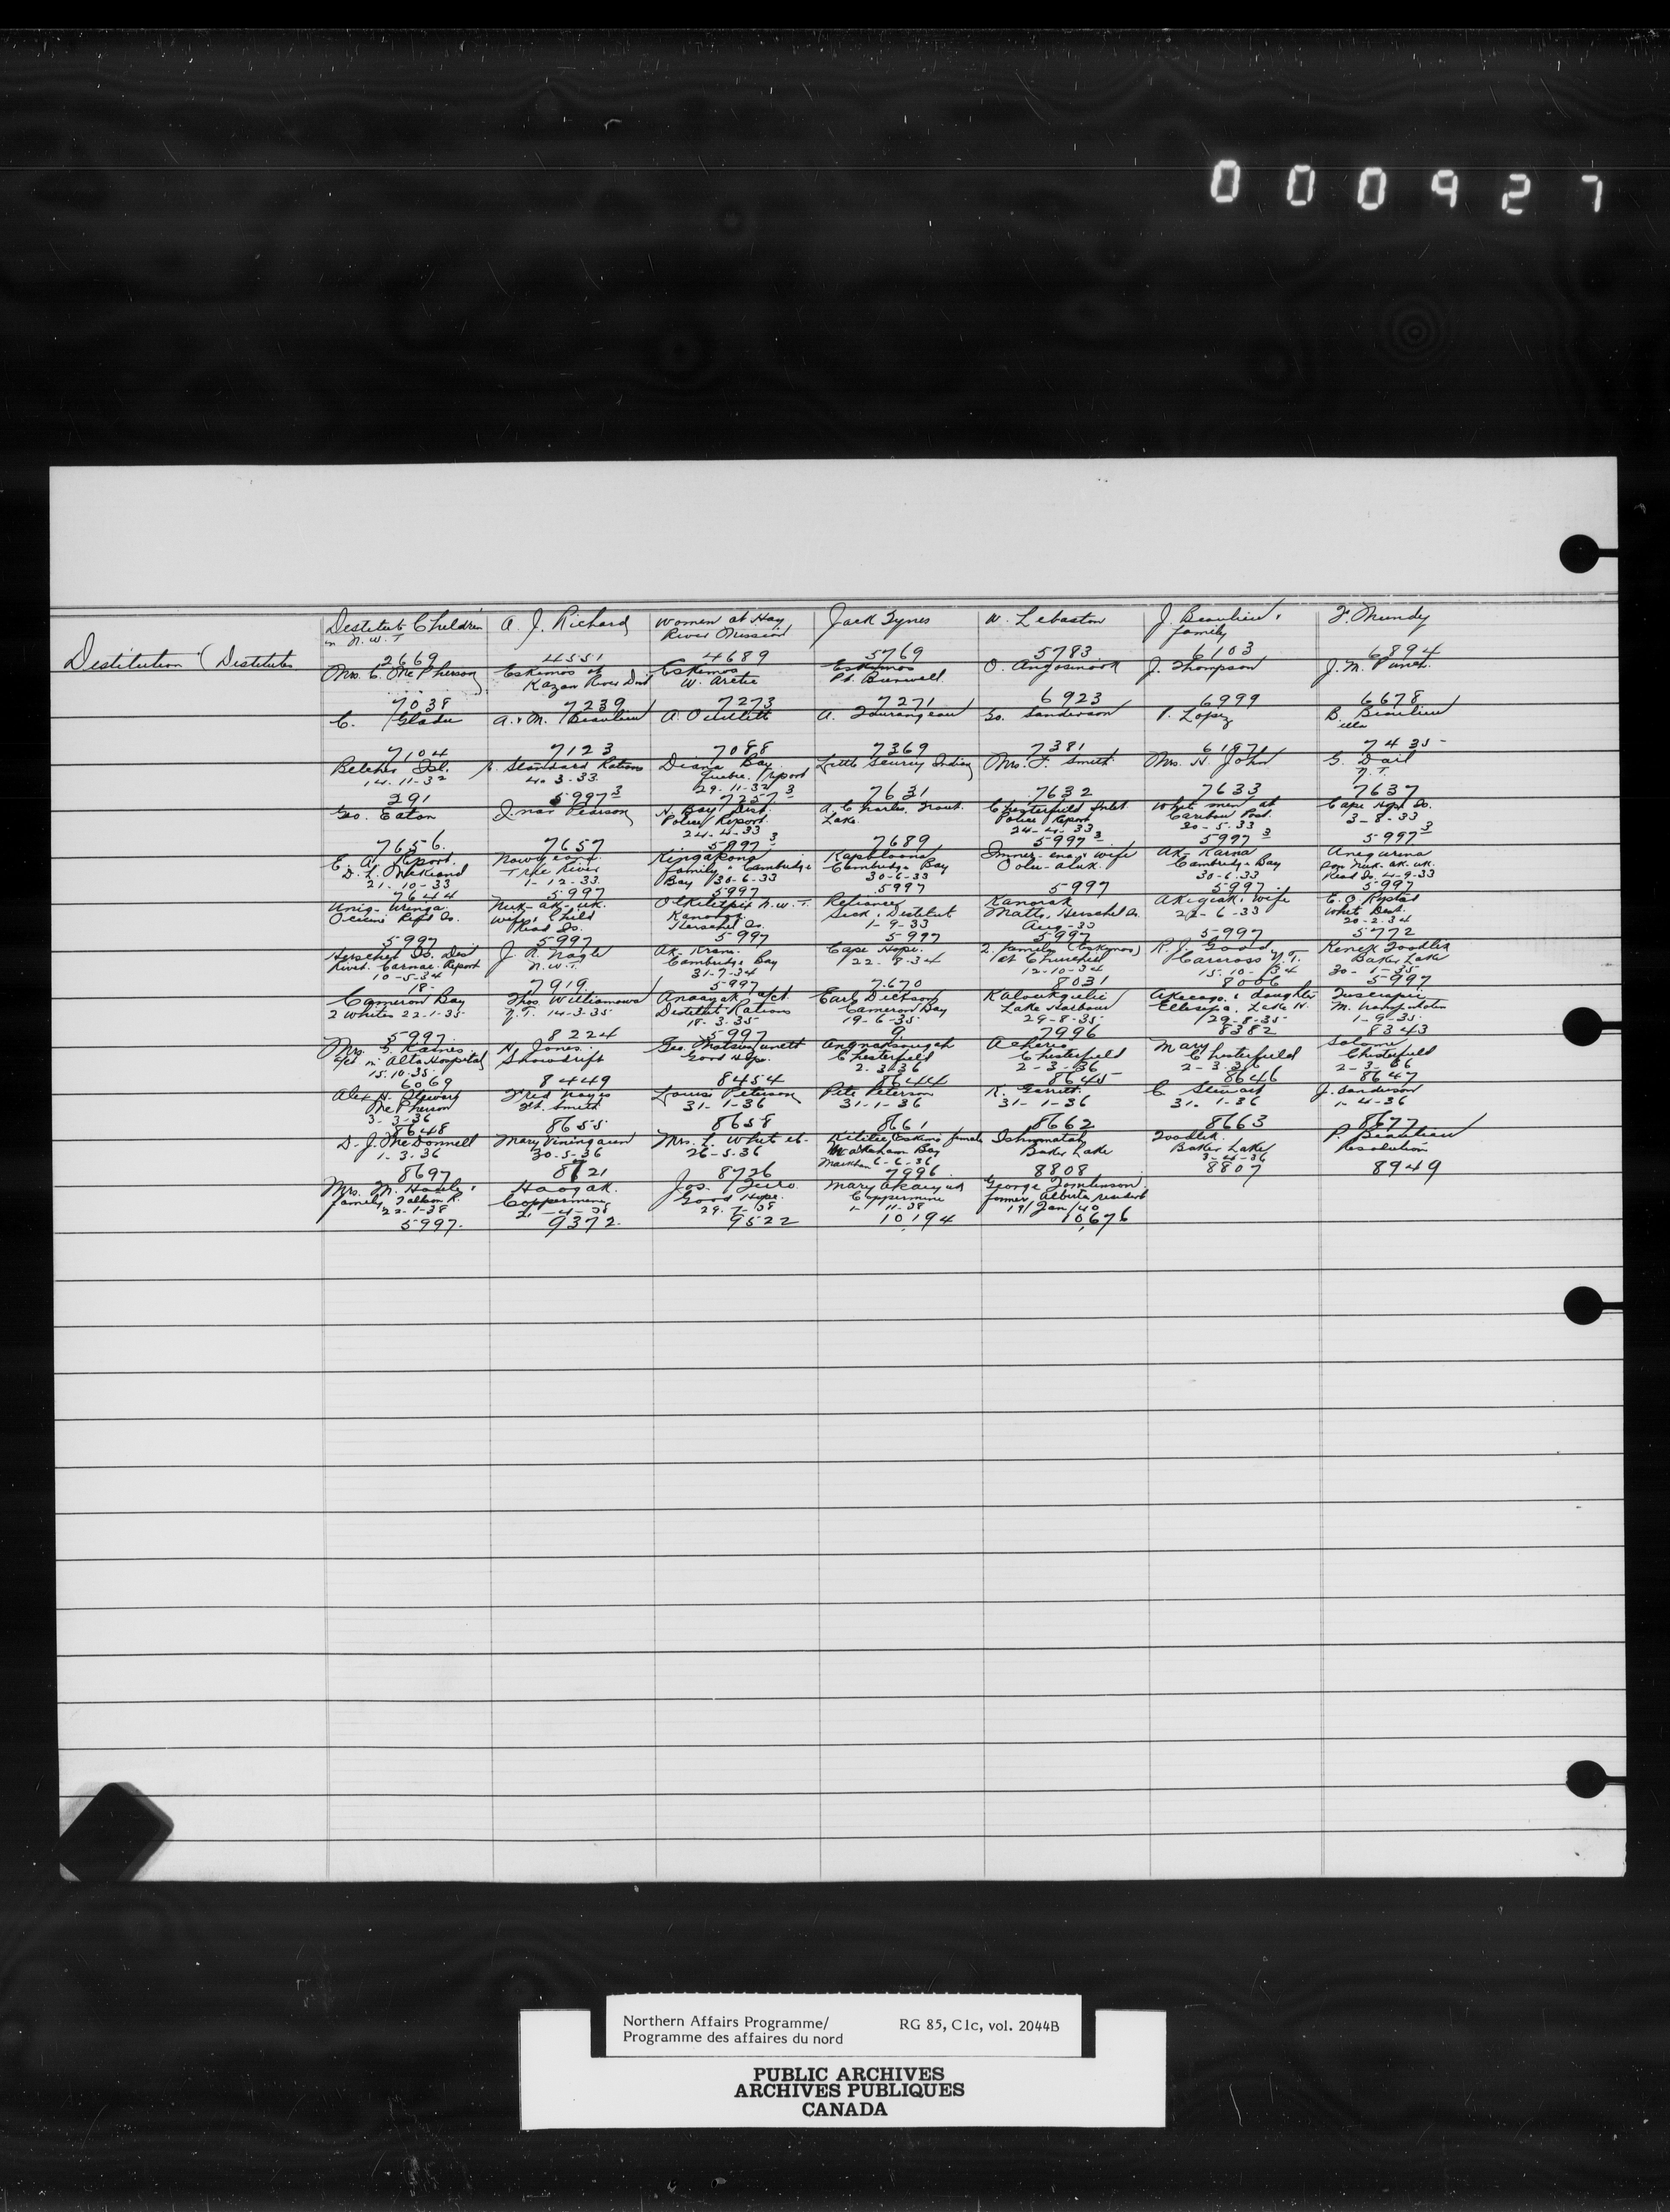 000927
Destitution (Destitutes
Destitute Children in N.W.T 2669
A. J. Richard 4551
Women at Hay River Mission 4689
Jack Tynes 5769
W. Lebaston 5783
J. Beaulieu & family 6103
F. Mundy 6894
Mrs. C. McPherson 7038
Eskimos at Kazan River Dist. 7239
Eskimos W. Arctic 7273
Eskimos Pt. Burwell 7271
O. Angosmook 6923
J. Thompson 6999
J. M. Punch 6678
C. Gladu 7104
A. & M. Beaulieu 7123
A. Ouellett 7088
A. Tourangeau 7369
Go. Sanderson 7381
P. Lopez 6197
B. Beaulieu 7435
Belcher Isl. 14-11-32 291
Standard Rations 4.3.33 5997³
Diana Bay Quebec report 29-11-32 7257³
Little Scurvy Indian 7631
Mrs. F. Smith 7632
Mrs. N. John 7633
G. Dail Y.T. 7637
Geo. Eaton 7656
Pearson 7657
H. Bay Dist. Police Report 24-4-33 5997³
A. Charles, Trout Lake 7689
Chesterfield Inlet Police Report 24-4-33 5997³
White men at Caribou Post 30-5-33 5997³
Cape Hope Is. 3-8-33 5997³
E. A. Report D. L. McKeand 21-10-33 7644
Tree River 1-12-33 5997
Kingakong family Cambridge Bay 30-6-33 5997
Kapbloona Cambridge Bay 30-6-33 5997
wife 5997
Ak-Karna Cambridge Bay 30-6-33 5997
son Nuk-ak-uk Read Is. 4-9-33 5997
5997
Nuk-ak-uk wife & child Read Is. 5997
N.W.T. Herschel Is. 5997
Reliance Sick & Destitute 1-9-33 5997
Kanorak Herschel Is. Aug-33 5997
Akigiak & wife 22-6-33 5997
White Dest. 20-2-34 5772
Herschel Is. Dist. Report 10-5-34 18
J. R. Nagle N.W.T. 7919
Cambridge Bay 31-7-34 5997
Cape Hope 22-8-34 7670
2 family (Eskimos) at Churchill 12-10-34 8031
R. J. Good Carcross Y.T. 15-10-34 8006
Baker Lake 30-1-35 5997
Cameron Bay 2 Whites 22-1-35 5997
Thos. Williamson Y.T. 14-3-35 8224
Destitute Rations 18-3-35 5997
Earl Dickson Cameron Bay 19-6-35 9
Lake Harbour 29-8-35 7996
daughter Lake H. 29-8-35 8382
1-9-35 8343
Mrs. Raines in Alta Hospital 15-10-35 6069
H. Jones Snowdrift 8449
Good Hope 8454
Chesterfield 2-3-36 8644
Chesterfield 2-3-36 8645
Mary Chesterfield 2-3-36 8646
Salome Chesterfield 2-3-36 8647
Alex H. Stewart McPherson 3-3-36 8648
Fred Ft. Smith 8655
Louise Peterson 31-1-36 8658
Pete Peterson 31-1-36 8661
K. Garrett 31-1-36 8662
C. Stewart 31-1-36 8663
J. Sanderson 1-4-36 8677
D. J. McDonnell 1-3-36 8697
Mary 30-5-36 8721
Mrs. L. 26-5-36 8726
Eskimo female Wakeham Bay 6-6-36 7996
Baker Lake 8808
Toodlik Baker Lake 3-4-36 8807
P. Beaulieu Resolution 8949
Mrs. M. family 22-1-38 5997
Haogak Coppermine 21-4-38 9372
Jos. Good Hope 29-7-38 9522
Mary Coppermine 1-11-38 10194
George Tomlinson former Alberta resident 19/Jan/40 10,676
Northern Affairs Programme/ RG 85, C1c, vol. 2044B
Programme des affaires du nord
PUBLIC ARCHIVES
ARCHIVES PUBLIQUES
CANADA